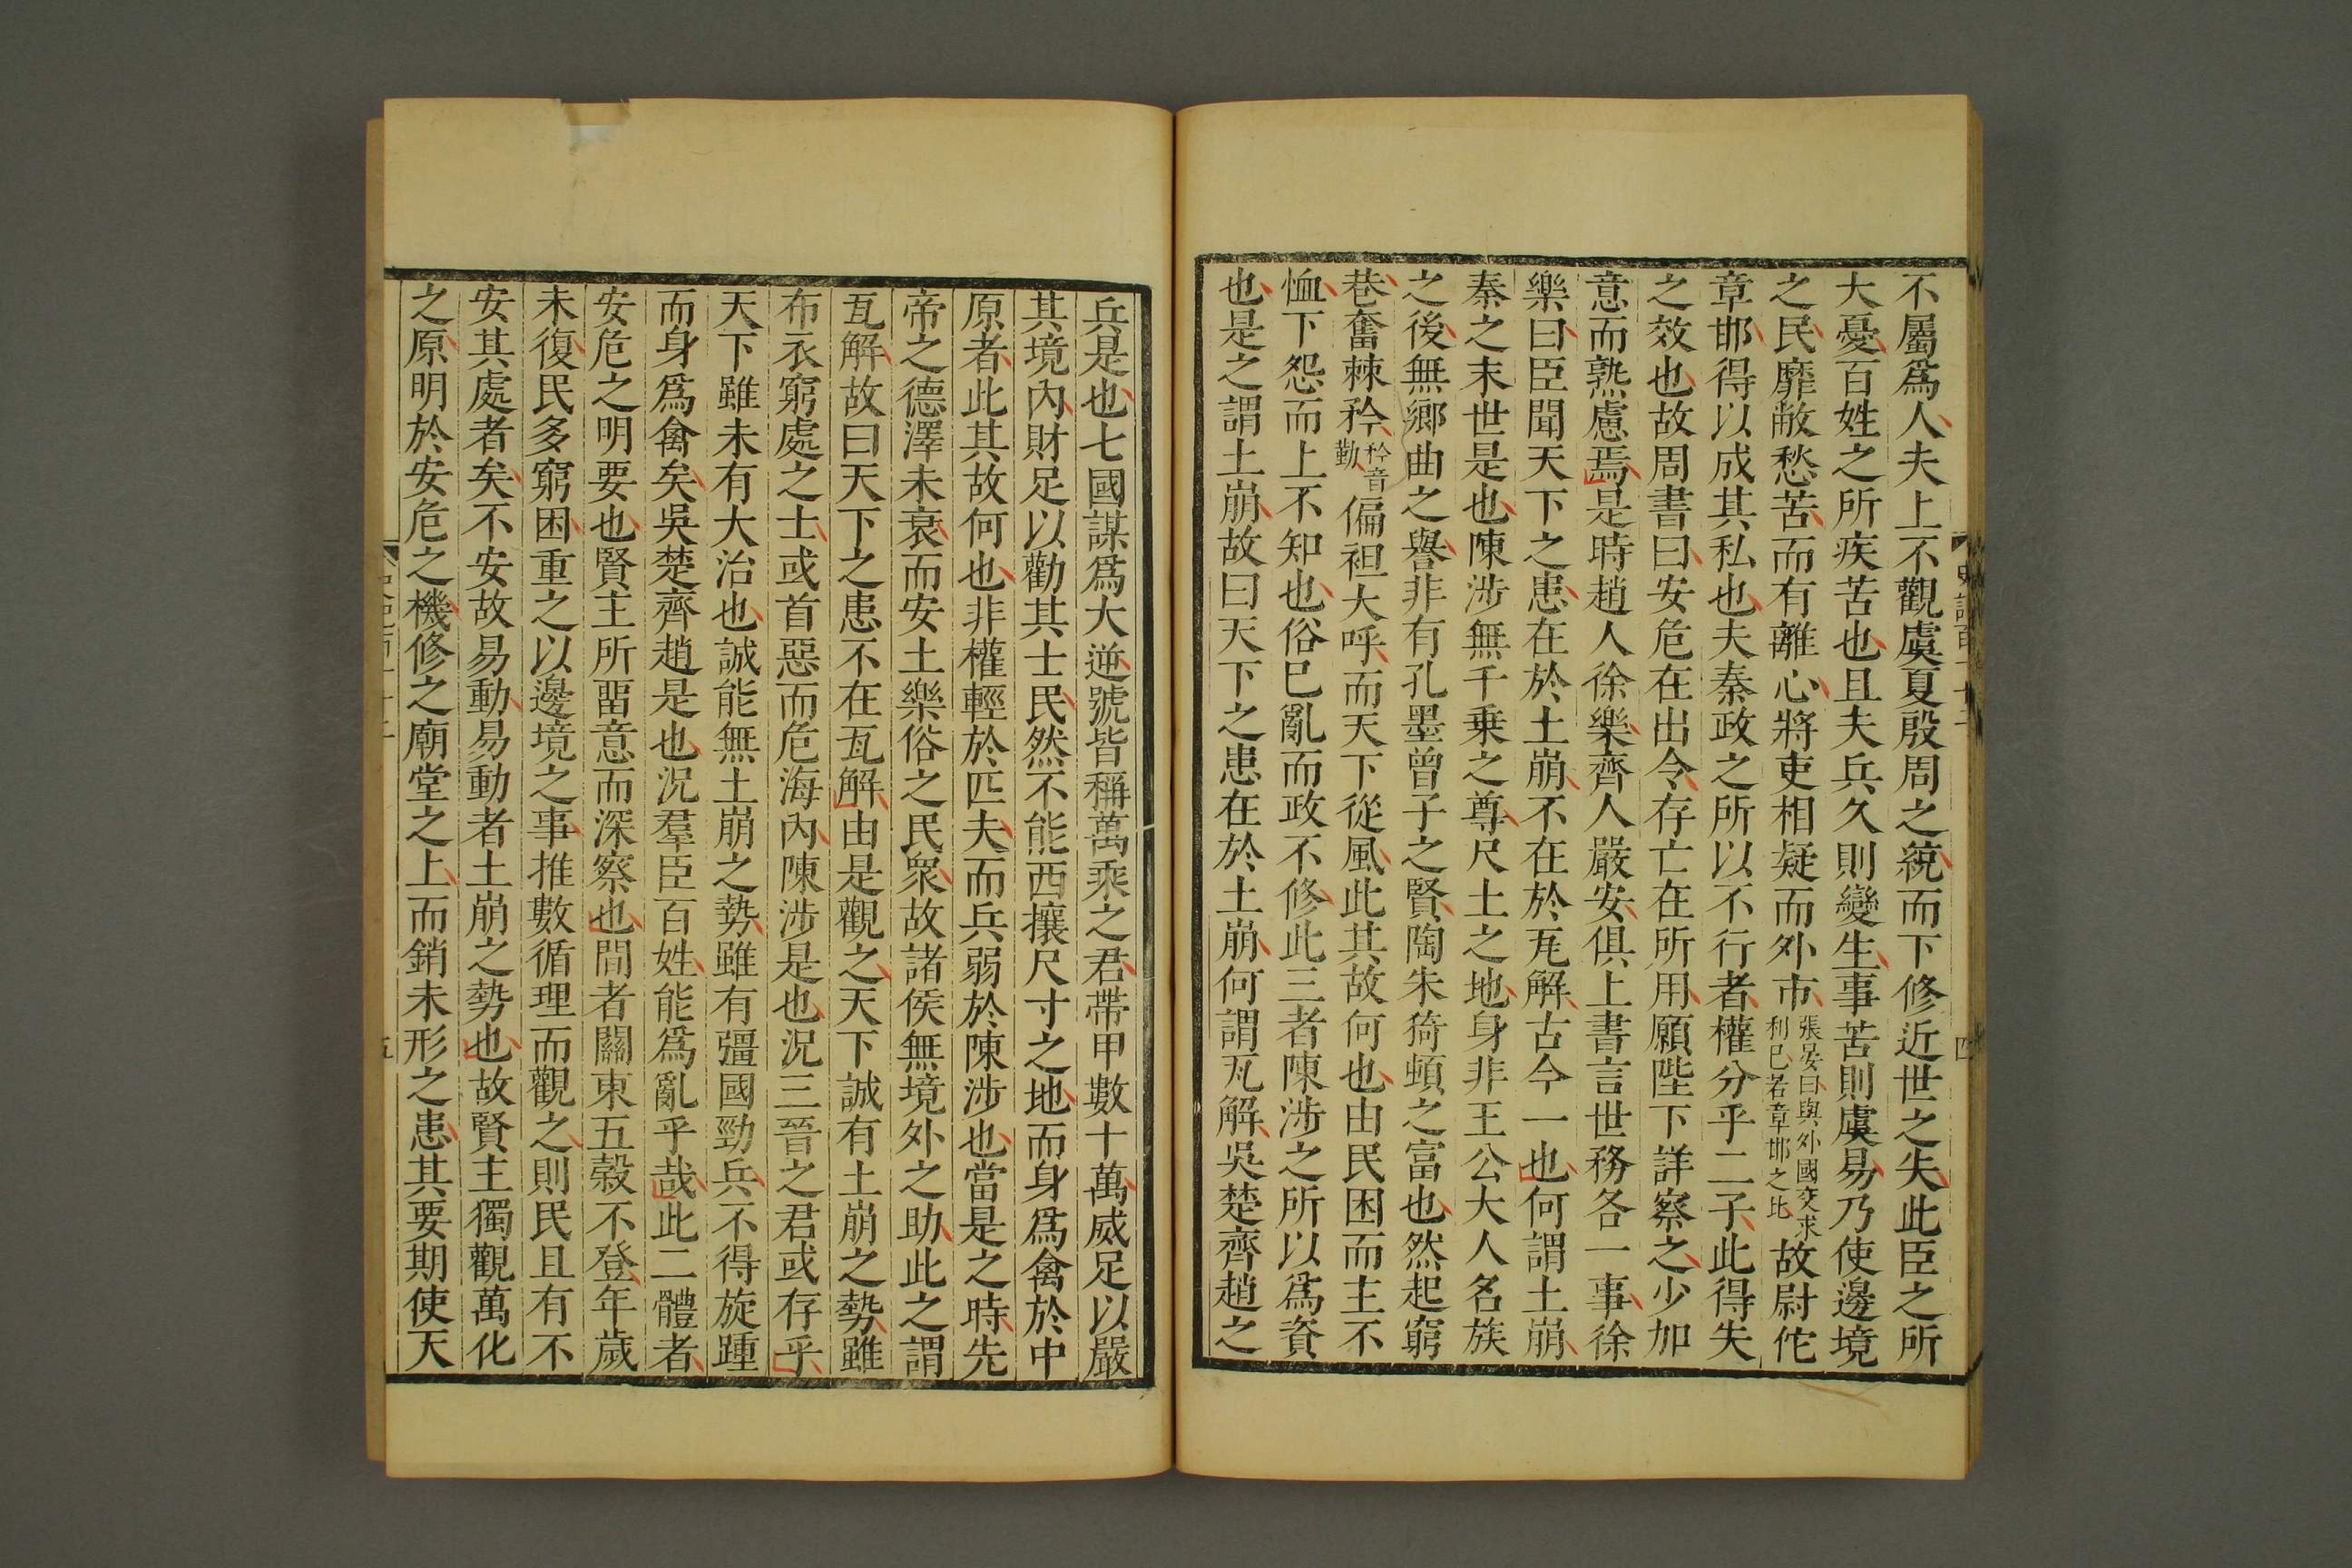 不屬爲人夫上不觀虞夏殷周之統而下修近世之失此臣之所
大憂百姓之所疾苦也且夫兵久則變生事苦則虞易乃使邊境
之民靡敝愁苦而有離心將吏相疑而外市張晏曰與外國交求利已若章邯之比故尉佗
章邯得以成其私也夫秦政之所以不行者權分乎二子此得失
之效也故周書曰安危在出令存亡在所用願陛下詳察之少加
意而熟慮焉是時趙人徐樂齊人嚴安俱上書言世務各一事徐
樂曰臣聞天下之患在於土崩不在於瓦解古今一也何謂土崩
秦之末世是也陳涉無千乗之尊尺土之地身非王公大人名族
之後無鄉曲之譽非有孔墨曾子之賢陶朱猗頓之富也然起窮
巷奮棘矜矜音勤偏袒大呼而天下從風此其故何也由民困而主不
恤下怨而上不知也俗已亂而政不修此三者陳涉之所以爲資
也是之謂土崩故曰天下之患在於土崩何謂瓦解吳楚齊趙之
兵是也七國謀爲大逆號皆稱萬乘之君帶甲數十萬威足以嚴
其境內財足以勸其士民然不能西攘尺寸之地而身爲禽於中
原者此其故何也非權輕於匹夫而兵弱於陳涉也當是之時先
帝之德澤未衰而安土樂俗之民衆故諸侯無境外之助此之謂
瓦解故曰天下之患不在瓦解由是觀之天下誠有土崩之勢雖
布衣窮處之士或首惡而危海內陳涉是也況三晉之君或存乎
天下雖未有大治也誠能無土崩之勢雖有彊國勁兵不得旋踵
而身爲禽矣吳楚齊趙是也況羣臣百姓能爲亂乎哉此二體者
安危之明要也賢主所畱意而深察也間者關東五穀不登年歲
未復民多窮困重之以邊境之事推數循理而觀之則民且有不
安其處者矣不安故易動易動者土崩之勢也故賢主獨觀萬化
之原明於安危之機修之廟堂之上而銷未形之患其要期使天